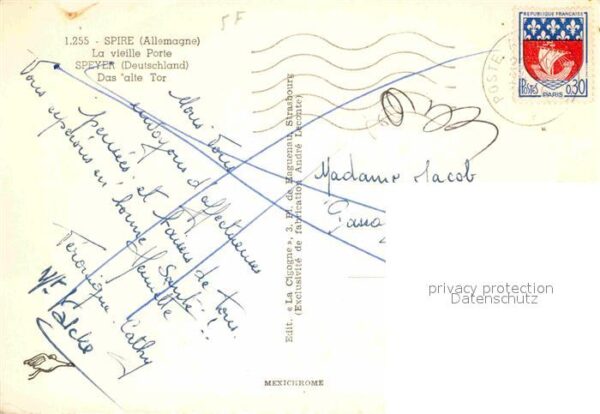 5F
1.255 - SPIRE (Allemagne)
La vieille Porte
SPEYER (Deutschland)
Das "alte Tor
Nous vous
envoyons d'affectueuses
pensées et baisers de tous.
Vous espérons en bonne Santé !!
Henriette
Véronique Cathy
Edit. « La Cigogne », 3, Pl. de Haguenau, Strasbourg
(Exclusivité de fabrication André Leconte)
MEXICHROME
REPUBLIQUE FRANÇAISE
POSTES
0,30
PARIS
POSTE
Madame Jacob
privacy protection
Datenschutz